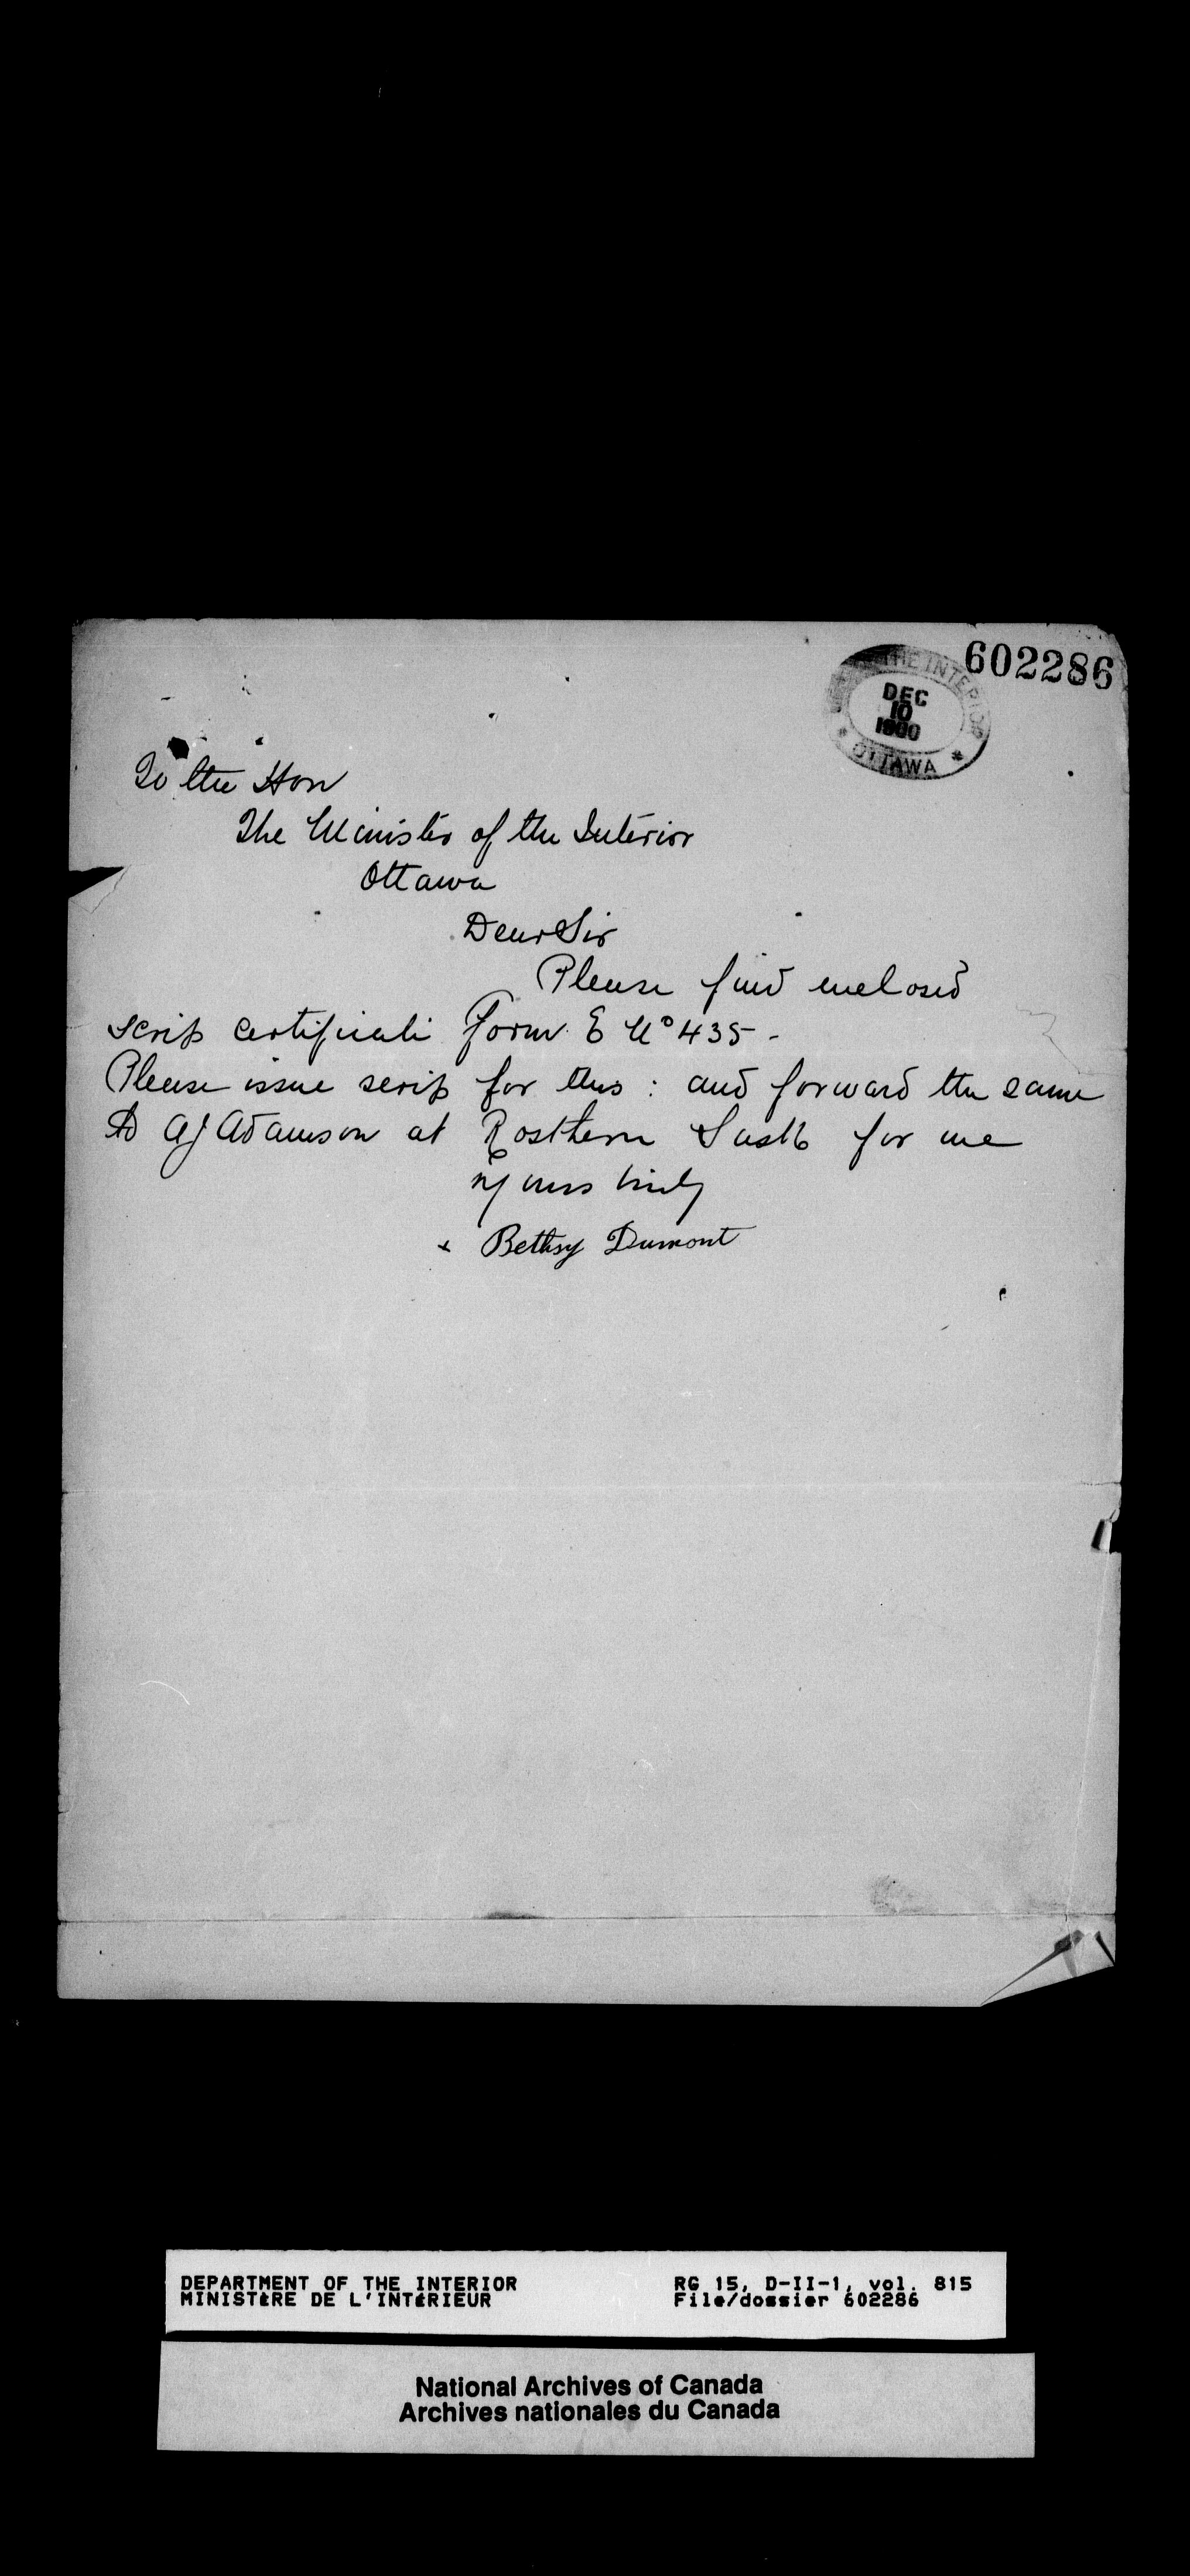 602286
THE INTERIOR
DEC
10
1900
* OTTAWA *
To the Hon
The Minister of the Interior
Ottawa
Dear Sir
Please find enclosed
scrip certificate Form E No 435 -
Please issue scrip for this : and forward the same
to AJ Adamson at Rosthern Sask for me
Yours truly
x Bethsy Dumont
DEPARTMENT OF THE INTERIOR
MINISTÈRE DE L'INTÉRIEUR
RG 15, D-II-1, vol. 815
File/dossier 602286
National Archives of Canada
Archives nationales du Canada